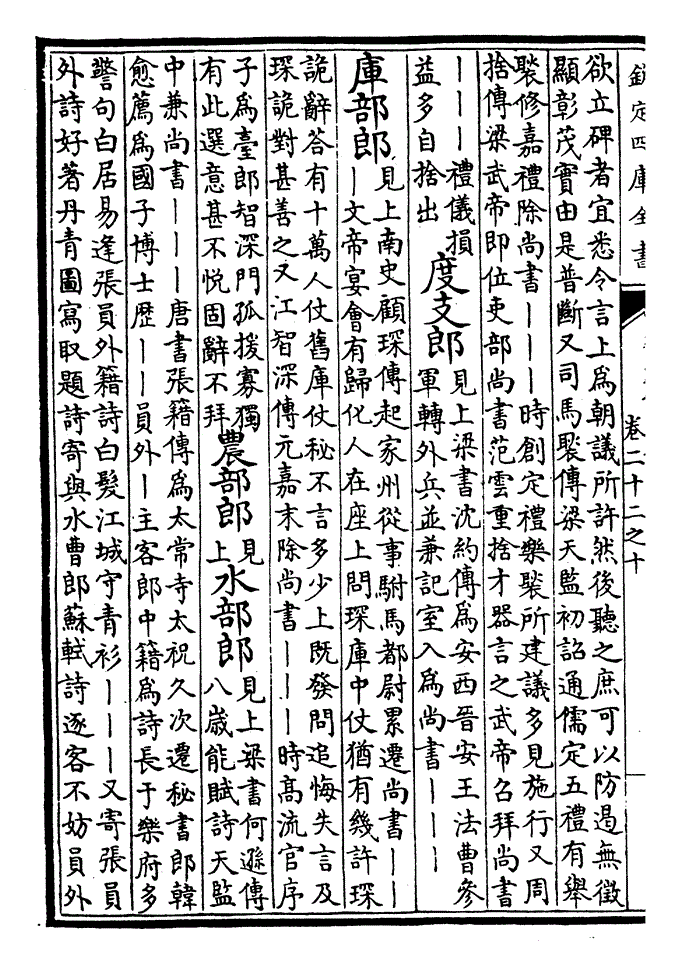 欽定四庫全書
卷二十二之十
欲立碑者宜悉令言上為朝議所許然後聽之庶可以防遏無徵
顯彰茂實由是普斷又司馬褧傳梁天監初詔通儒定五禮有舉
褧修嘉禮除尚書｜｜｜時創定禮樂褧所建議多見施行又周
捨傳梁武帝即位吏部尚書范雲重捨才器言之武帝召拜尚書
｜｜｜禮儀損
益多自捨出
度支郎
見上梁書沈約傳為安西晉安王法曹參
軍轉外兵並兼記室入為尚書｜｜｜
庫部郎
見上南史顧琛傳起家州從事駙馬都尉累遷尚書｜｜
｜文帝宴會有歸化人在座上問琛庫中仗猶有幾許琛
詭辭答有十萬人仗舊庫仗秘不言多少上既發問追悔失言及
琛詭對甚善之又江智深傳元嘉末除尚書｜｜｜時高流官序
子為臺郎智深門孤援寡獨
有此選意甚不悅固辭不拜
農部郎
見
上
水部郎
見上梁書何遜傳
八歲能賦詩天監
中兼尚書｜｜｜唐書張籍傳為太常寺太祝久次遷秘書郎韓
愈薦為國子博士歷｜｜員外｜主客郎中籍為詩長于樂府多
警句白居易逢張員外籍詩白髮江城守青衫｜｜｜又寄張員
外詩好著丹青圖寫取題詩寄與水曹郎蘇軾詩逐客不妨員外